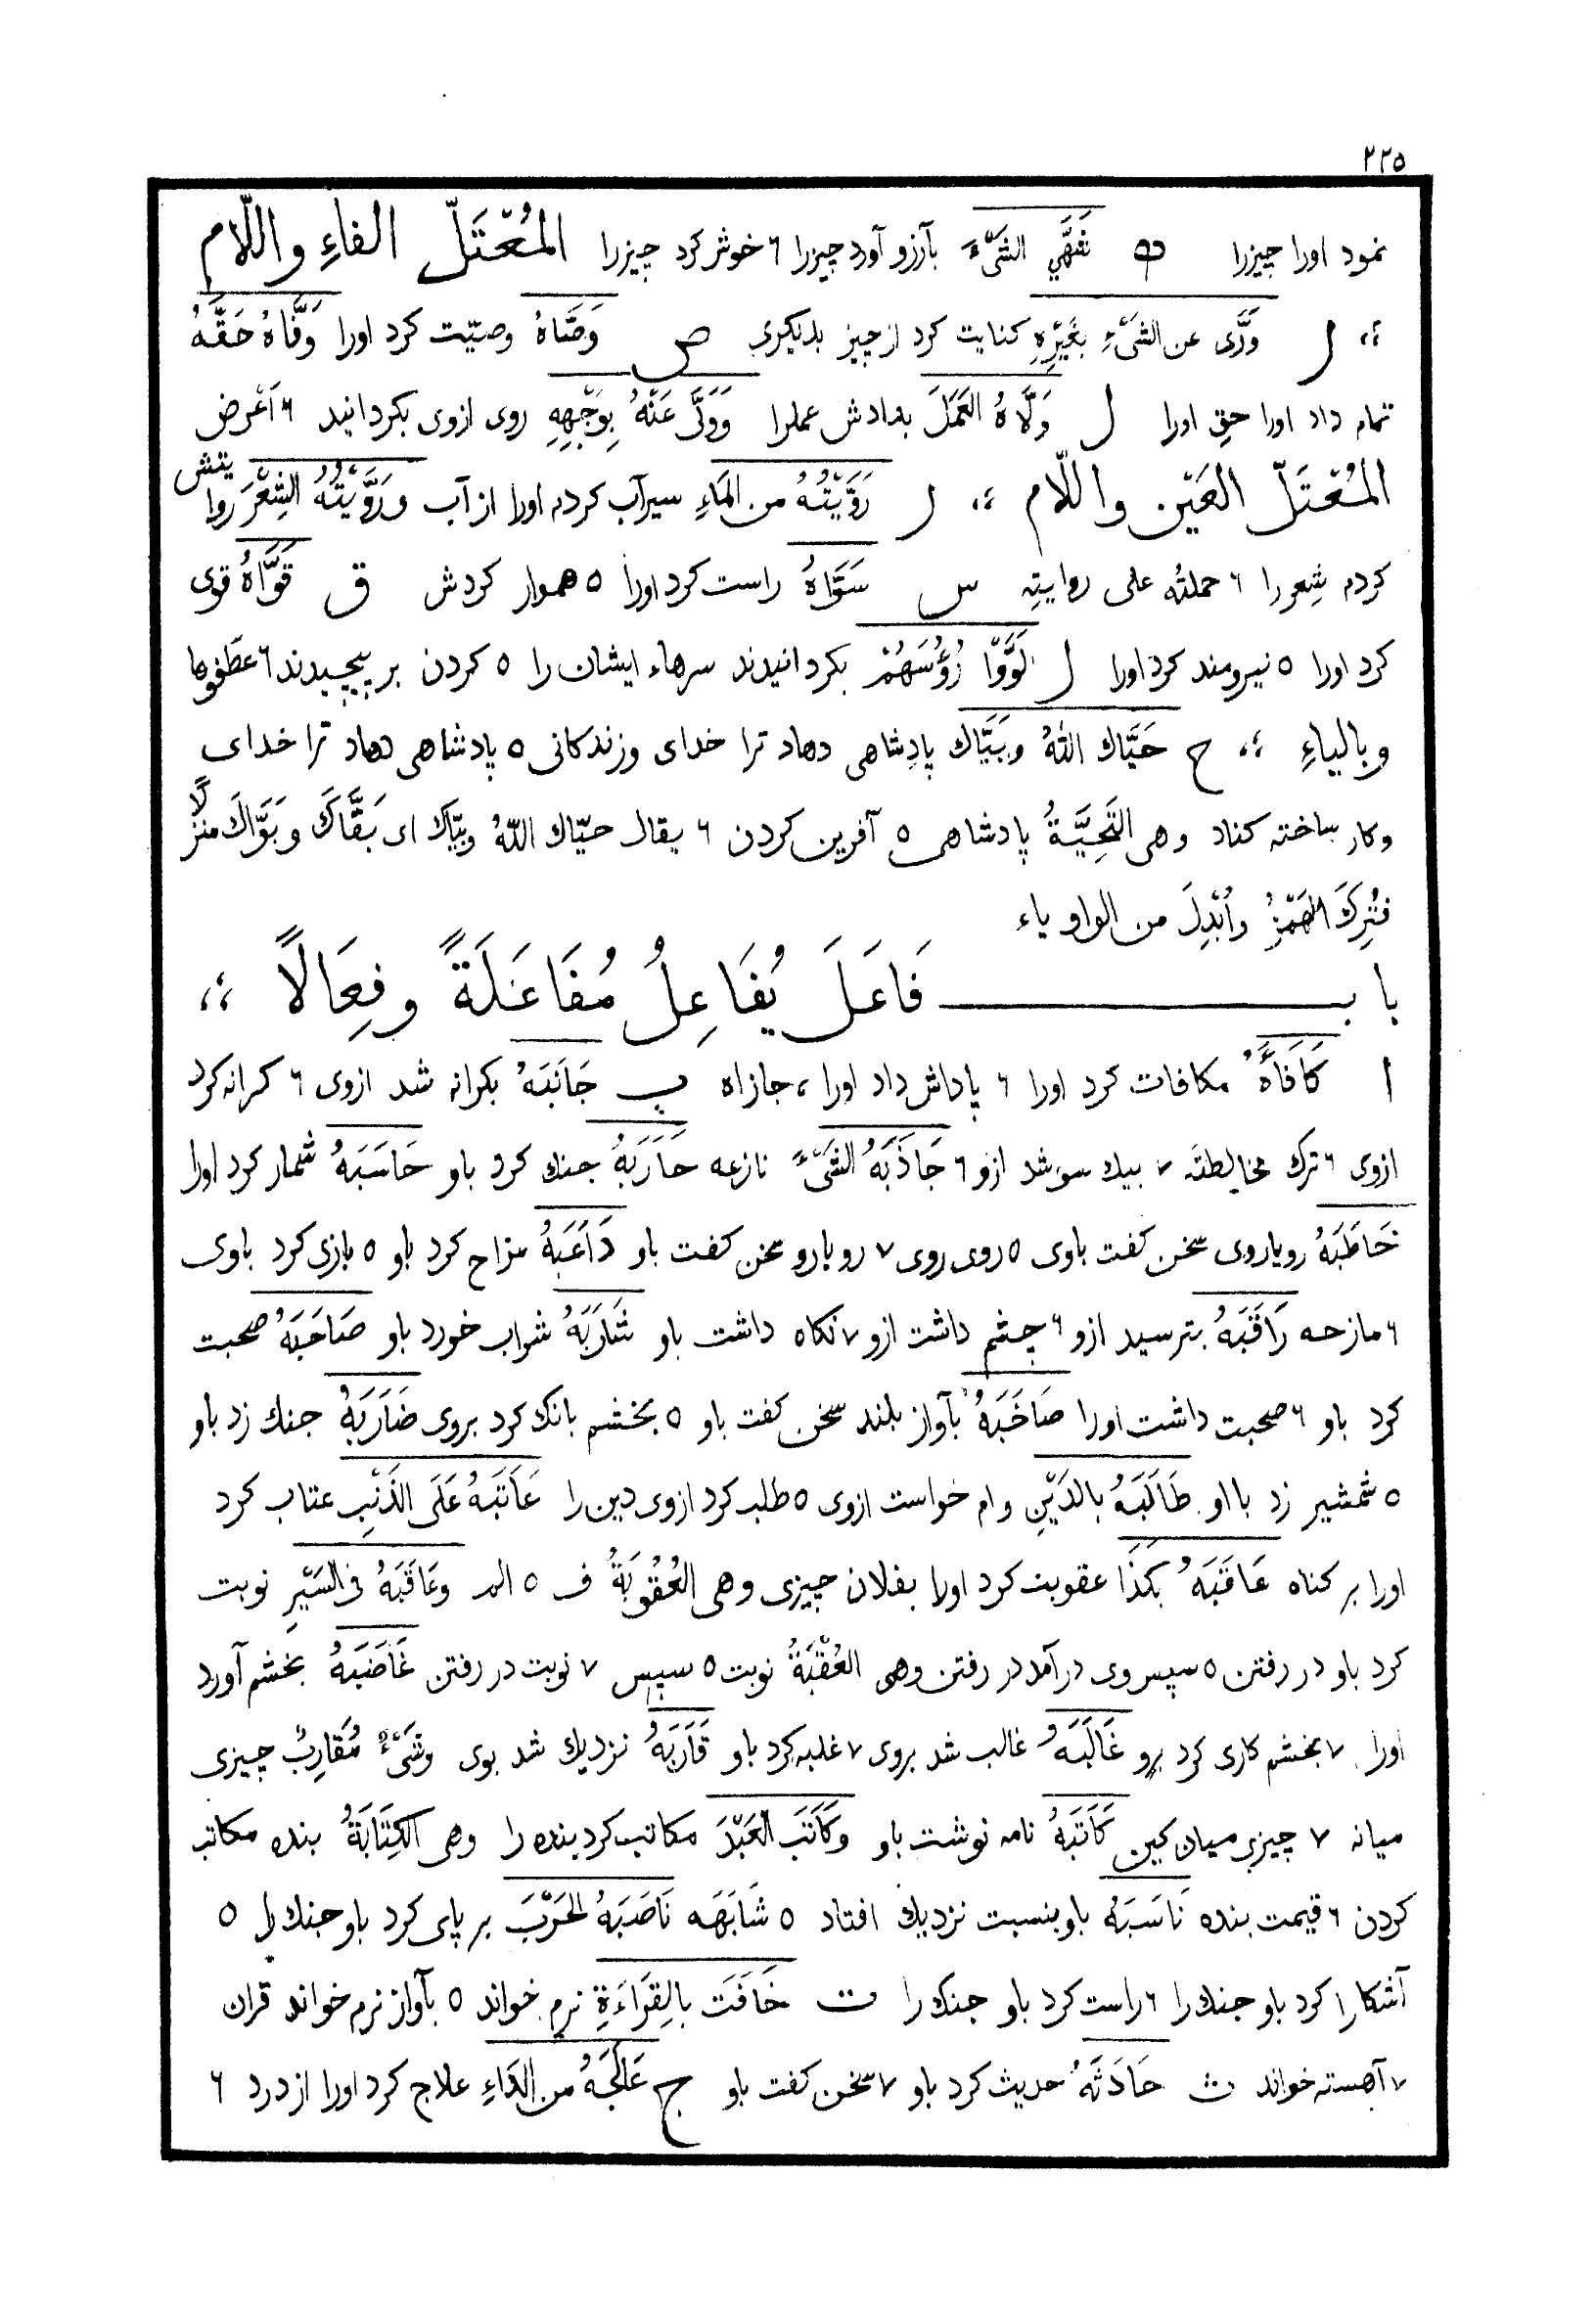 ٢٢٥
نمود اورا چیزرا ه نَفَهَّي الشَّیْءَ بآرزو آورد چیزرا ٦ خوش کرد چیزرا المُعْتَلّ الفاءِ واللّام
؛؛ ر وَرَّی عن الشَّیْءِ بِغَیْرِهِ کنایت کرد از چیز بدیکری ص وَصَّاهُ وصیّت کرد اورا وَفَّاهُ حَقَّهُ
تمام داد اورا حقِ اورا ل وَلَّاهُ العَمَلَ بدادش عملرا وَوَلَّی عَنْهُ بِوَجْهِهِ روی ازوی بکردانید ٦ اَعْرض
المُعْتَلّ العَیْن واللّام ؛؛ ر رَوَّیْتُهُ من المَاءِ سیرآب کردم اورا از آب وَرَوَّیْتُهُ الشِعْرَ روایتش
کردم شِعر را ٦ حملتُه علی روایتِه س سَوَّاهُ راست کرد اورا ٥ هموار کردش ق قَوَّاهُ قوی
کرد اورا ٥ نیرومند کرد اورا ل لَوَّوْا رُؤُسَهُمْ بکردانیدند سرهاء ایشان را ٥ کردن بر پیچیدند ٦ عطفوها
وبالیاءِ ؛؛ ح حَیَّاك اللهُ وبَیَّاك پادِشاهی دهاد ترا خدای وزندکانی ٥ پادشاهی دهاد ترا خدای
وکار ساخته کناد وهی التَحِیَّةُ پادشاهی ٥ آفرین کردن ٦ یقال حیّاك اللّهُ وبیّاك ای بَقَّاكَ وبَوَّاكَ منزلًا
فتُرِكَ الهَمْزُ وأُبْدِلَ من الواو یاء
باب فَاعَلَ یُفَاعِلُ مُفَاعَلَةً وفِعَالًا ؛؛
ا کَافَأَهُ مکافات کرد اورا ٦ پاداش داد اورا ، جازاه ب جَانَبَهُ بکرانه شد ازوی ٦ کرانه کرد
ازوی ٦ ترك مخالطته ٧ بیك سو شد ازو ٦ جَاذَبَهُ الشَّیْءَ نازعه حَارَبَهُ جنك کرد باو حَاسَبَهُ شمار کرد اورا
خَاطَبَهُ رویاروی سخن کفت باوی ٥ روی روی ٧ رویارو سخن کفت باو دَاعَبَهُ مزاح کرد باو ٥ بازی کرد باوی
٦ مازحه رَاقَبَهُ بترسید ازو ٦ چشم داشت ازو ٧ نکاه داشت باو شَارَبَهُ شراب خورد باو صَاحَبَهُ صحبت
کرد باو ٦ صحبت داشت اورا صَاخَبَهُ بآواز بلند سخن کفت باو ٥ بخشم بانك کرد بروی ضَارَبَهُ جنك زد باو
٥ شمشیر زد بااو طَالَبَهُ بالدَیْنِ وام خواست ازوی ٥ طلب کرد ازوی دین را عَاتَبَهُ عَلَی الذَنْبِ عتاب کرد
اورا بر کناه عَاقَبَهُ بکَذَا عقوبت کرد اورا بفلان چیزی وهی العُقُوبَةُ ف ٥ الم وعَاقَبَهُ فی السَیْرِ نوبت
کرد باو در رفتن ٥ سپس وی در آمد در رفتن وهی العُقْبَةُ نوبت ٥ سپس ٧ نوبت در رفتن غَاضَبَهُ بخشم آورد
اورا ٧ بخشم کاری کرد برو غَالَبَهُ غالب شد بروی ٧ غلبه کرد باو قَارَبَهُ نزدیك شد بوی وشَیْءٌ مُقَارِبٌ چیزی
میانه ٧ چیزی میان کین کَاتَبَهُ نامه نوشت باو وکَاتَبَ العَبْدَ مکاتب کرد بنده را وهی الکِتَابَةُ بنده مکاتب
کردن ٦ قیمت بنده نَاسَبَهُ باو بنسبت نزدیك افتاد ٥ شَابَهَه نَاصَبَهُ الحَرْبَ بر پای کرد باو جنك را ٥
آشکارا کرد باو جنك را ٦ راست کرد باو جنك را ت خَافَتَ بالِقِرَاءَةِ نرم خواند ٥ بآواز نرم خواند قران
٧ آهسته خواند ث حَادَثَهُ حدیث کرد باو ٧ سخن کفت باو ج عَالَجَهُ من الدَاءِ علاج کرد اورا از درد ٦